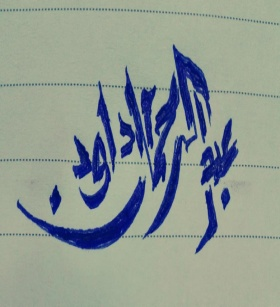 عبد الرحمن داود